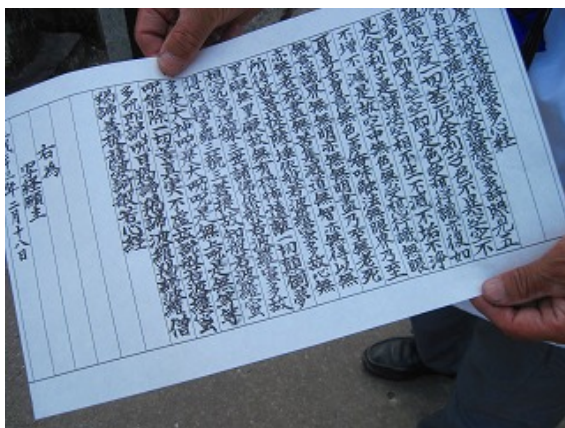 摩訶般若波羅蜜多心経
観自在菩薩行深般若波羅蜜多時照見五
蘊皆空度一切苦厄舎利子色不異空空不
異色色即是空空即是色受想行識亦復如
是舎利子是諸法空相不生不滅不垢不浄
不増不減是故空中無色無受想行識無眼
耳鼻舌身意無色声香味触法無眼界乃至
無意識界無無明亦無無明尽乃至無老死
亦無老死尽無苦集滅道無智亦無得以無
所得故菩提薩埵依般若波羅蜜多故心無
罣礙無罣礙故無有恐怖遠離一切顛倒夢
想究竟涅槃三世諸仏依般若波羅蜜多故
得阿耨多羅三藐三菩提故知般若波羅蜜
多是大神呪是大明呪是無上呪是無等等
呪能除一切苦真実不虚故説般若波羅蜜
多呪即説呪曰羯諦羯諦波羅羯諦波羅僧
羯諦菩提薩婆訶般若心経
右為
写経願主
年二月十八日